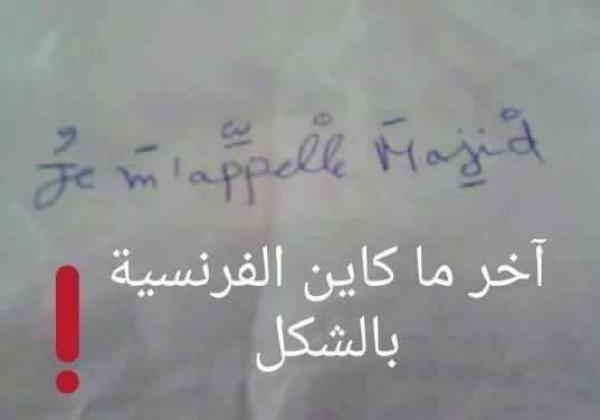 Je m'appelle Majid
آخر ما كاين الفرنسية
بالشكل
!